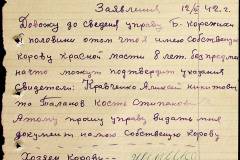 Заявления
12/VI 42 г.
Довожу до сведения управу Б. Корежкая
в половини о том что я имею Собственую
корову красной масти 8 лет без
на что можут подтвердит указания
свидетели: Кравченко Алексей Никитович
то Талаков Косте Стипанович
Атому прошу управу видать мне
документ на мою Собствеую корову
Хозяен Коровы